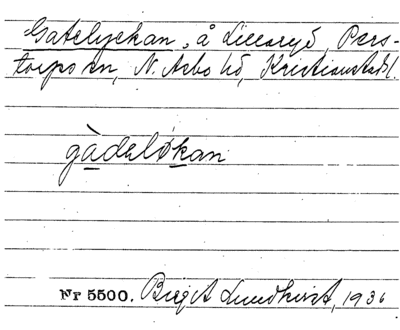 Gatelyckan, å Lillaryd, Pers-
torps sn, N. Åsbo hd, Kristianstads l.
gàdeløkan
Nr 5500. Birgit Lundkvist, 1936